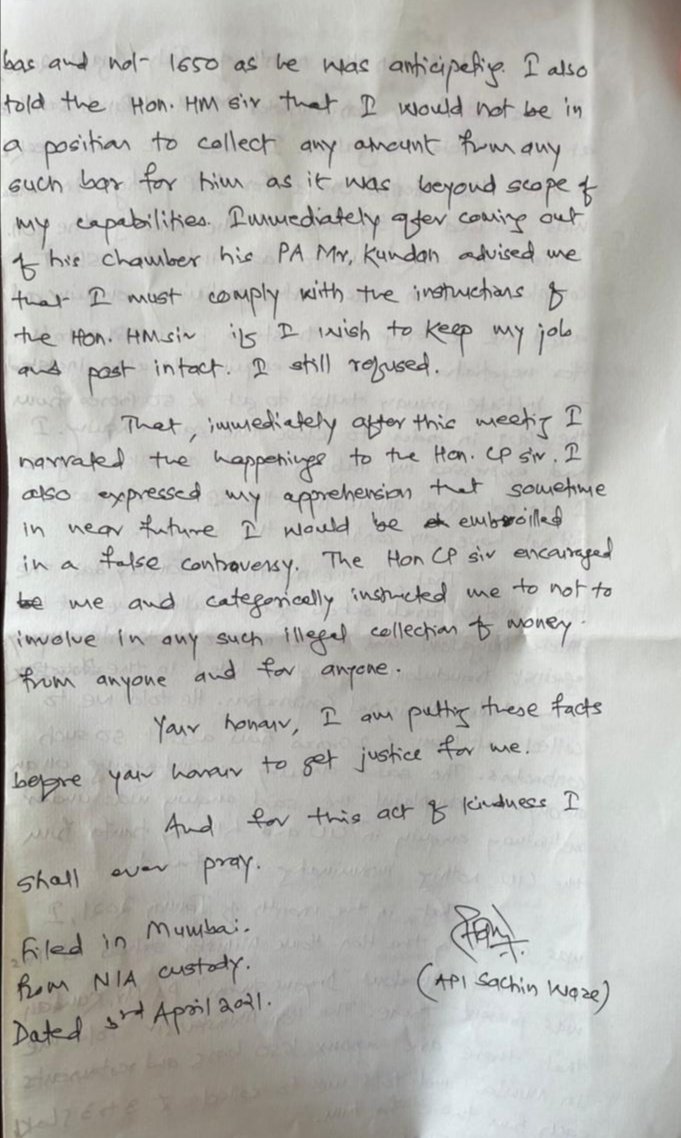 bas and not 1650 as he was anticipatig. I also
told the Hon. HM sir that I would not be in
a position to collect any amount from any
such bar for him as it was beyond scope of
my capabilities. Immediately after coming out
of his chamber his PA Mr, Kundan advised me
that I must comply with the instructions of
the Hon. HM sir if I wish to keep my job
and post intact. I still refused.
That, immediately after this meetig I
narrated the happenings to the Hon. CP sir. I
also expressed my apprehension that sometime
in near future I would be embroilled
in a false controversy. The Hon CP sir encouraged
me and categorically instructed me to not to
involve in any such illegal collection of money
from anyone and for anyone.
Your honour, I am puttig these facts
before your honour to get justice for me.
And for this act of kindness I
shall ever pray.
Filed in Mumbai.
From NIA custody.
Dated 3rd April 2021.
(API Sachin Waze)